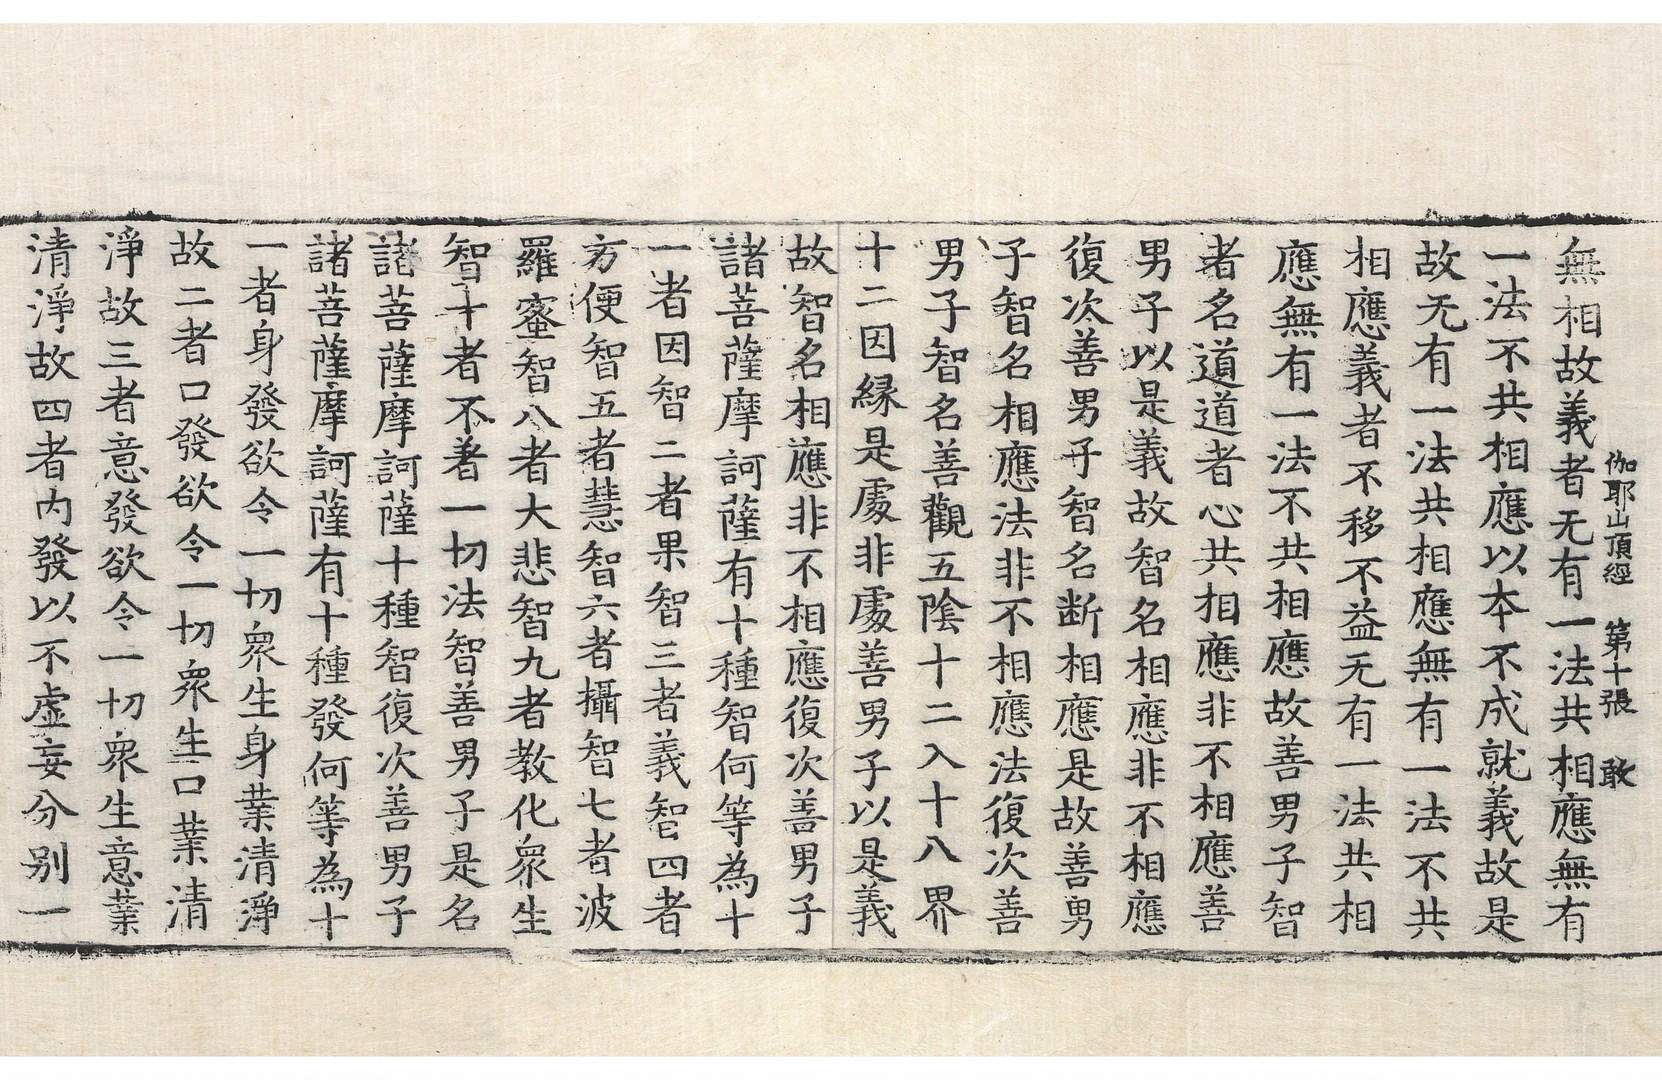 伽耶山頂經　第十張　敢
無相故義者无有一法共相應無有
一法不共相應以本不成就義故是
故无有一法共相應無有一法不共
相應義者不移不益无有一法共相
應無有一法不共相應故善男子智
者名道道者心共相應非不相應善
男子以是義故智名相應非不相應
復次善男子智名断相應是故善男
子智名相應法非不相應法復次善
男子智名善觀五陰十二入十八界
十二因縁是處非處善男子以是義
故智名相應非不相應復次善男子
諸菩薩摩訶薩有十種智何等為十
一者因智二者果智三者義智四者
方便智五者慧智六者攝智七者波
羅蜜智八者大悲智九者教化衆生
智十者不著一切法智善男子是名
諸菩薩摩訶薩十種智復次善男子
諸菩薩摩訶薩有十種發何等為十
一者身發欲令一切衆生身業清淨
故二者口發欲令一切衆生口業清
淨故三者意發欲令一切衆生意業
清淨故四者内發以不虚妄分别一